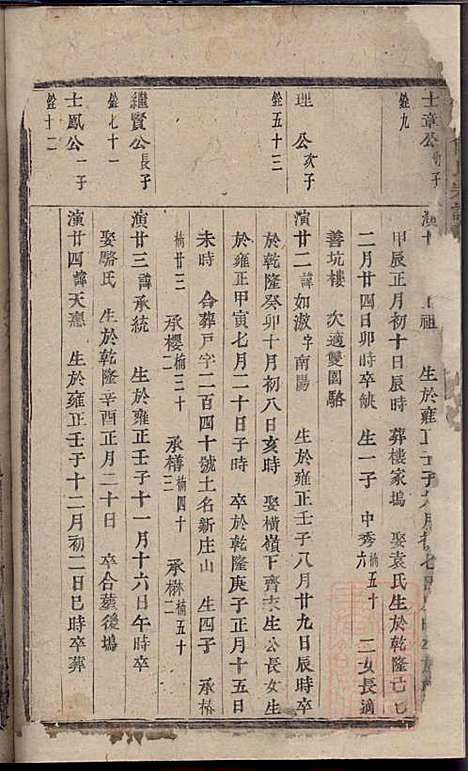 士章公 子
銓九
演廿 祖 生於雍正壬子六月初七
甲辰正月初十日辰時 葬樓家塢 娶袁氏生於乾隆己巳
二月廿四日卯時卒缺 生一子 中秀楠五十六 二女長適
善坑樓 次適雙園駱
理公次子
銓五十三
演廿二諱如漵字南陽 生於雍正壬子八月廿九日辰時卒
於乾隆癸卯十月初八日亥時 娶橫嶺下齊 生公長女生
於雍正甲寅七月二十日子時 卒於乾隆庚子正月十五日
未時 合葬戸字二百四十號土名新庄山 生四子 承椿
楠廿三 承櫻楠三十二 承楠四十二 承楙楠五十二
繼賢公長子
銓七十一
演廿三諱承統 生於雍正壬子十一月十六日午時卒
娶駱氏 生於乾隆辛酉正月二十日 卒合葬後塢
士鳳公一子
銓十二
演廿四諱天 生於雍正壬子十二月初二日巳時卒葬